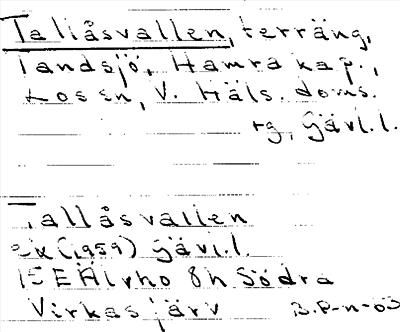 Tallåsvallen, terräng,
Tandsjö, Hamra kap.,
Los sn, V. Häls. doms.
rg, Gävl.l.
Tallåsvallen
ek (1959) Gävl.l.
15E Älvho 8h Södra
Virkasjärv